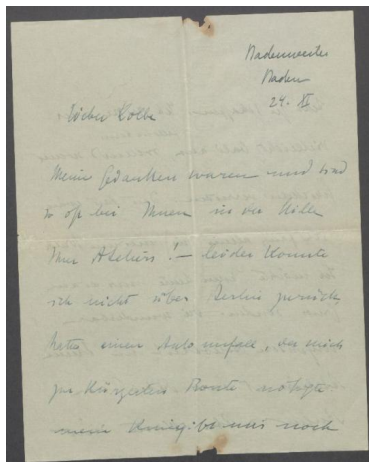 Badenweiler
Baden
24. XI
Lieber Kolbe
Meine Gedanken waren und sind
so oft bei Ihnen in der Stille
Ihres Ateliers! – leider konnte
ich nicht über Berlin zurück,
hatte einen Autounfall, der mich
zur kürzesten Route nötigte
mein Knie gibt mir noch